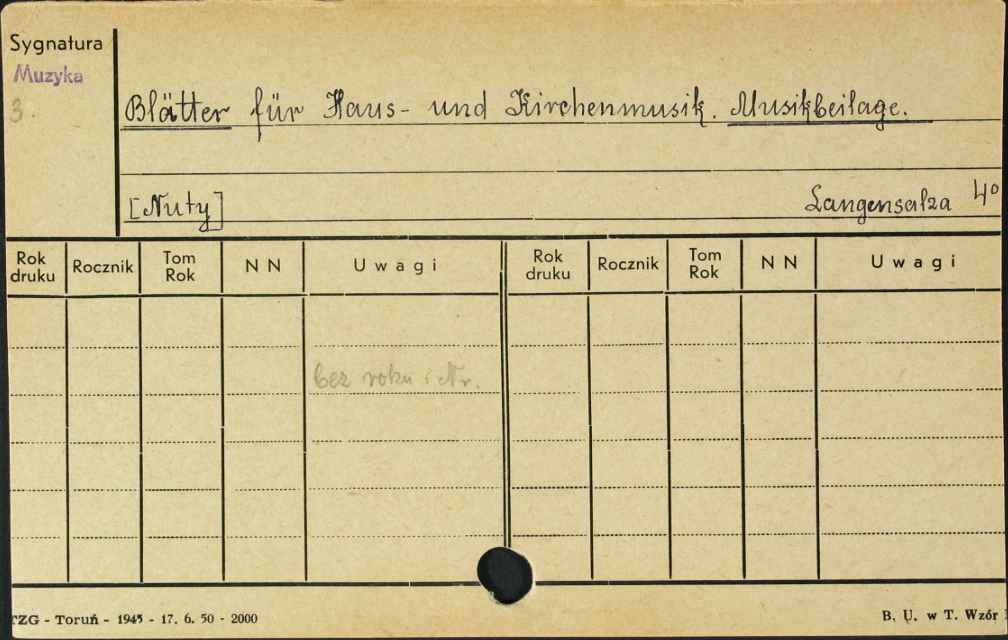 Sygnatura
Muzyka
3.
Blätter für Haus- und Kirchenmusik. Musikbeilage.
[Nuty]
Langensalza 4°
Rok druku Rocznik Tom Rok N N Uwagi Rok druku Rocznik Tom Rok N N Uwagi
bez roku i Nr.
TZG - Toruń - 1945 - 17. 6. 50 - 2000
B. U. w T. Wzór